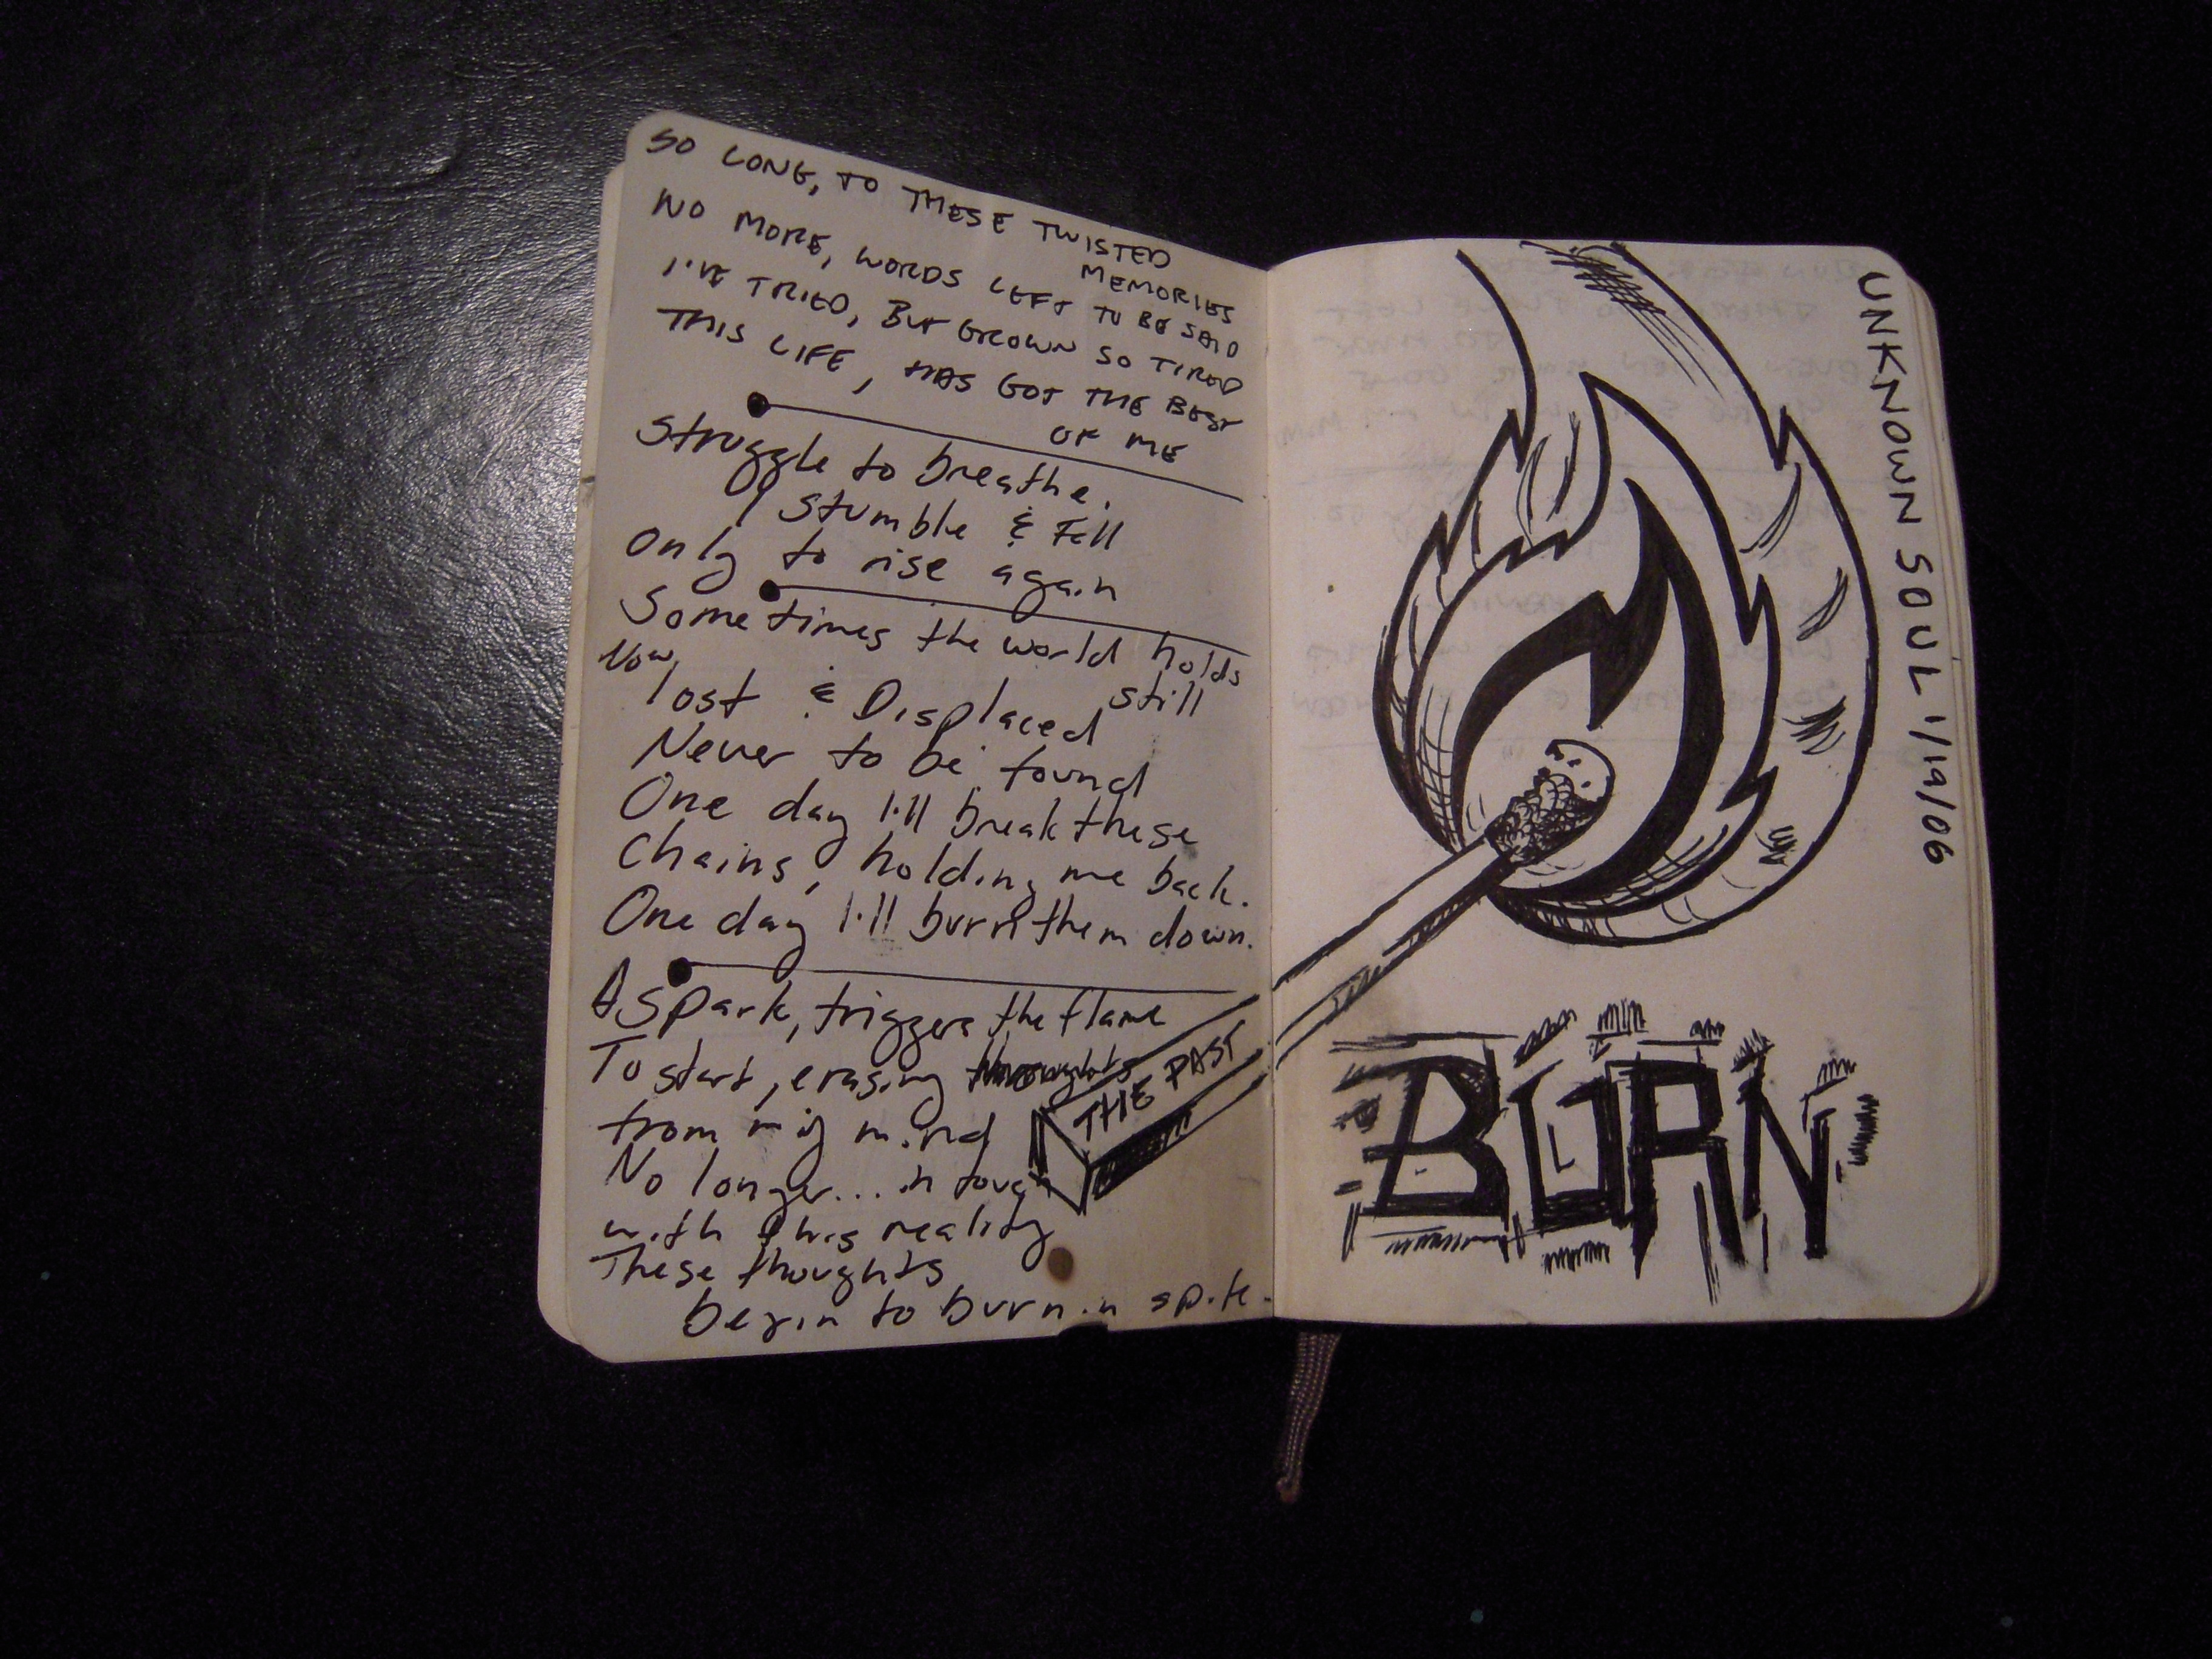 SO LONG, TO THESE TWISTED
MEMORIES
NO MORE, WORDS LEFT TO BE SAID
I'VE TRIED, BUT GROWN SO TIRED
THIS LIFE, HAS GOT THE BEST
OF ME
Struggle to breathe.
Stumble & Fall
Only to rise again
Sometimes the world holds
still
Now,
lost & Displaced
Never to be found
One day I'll break these
Chains, holding me back.
One day I'll burn them down.
A spark, triggers the flame
To start, erasing thoughts
from my mind
No longer... in touch
with this reality
These thoughts
begin to burn in spite.
THE PAST
UNKNOWN SOUL 1/19/06
BURN